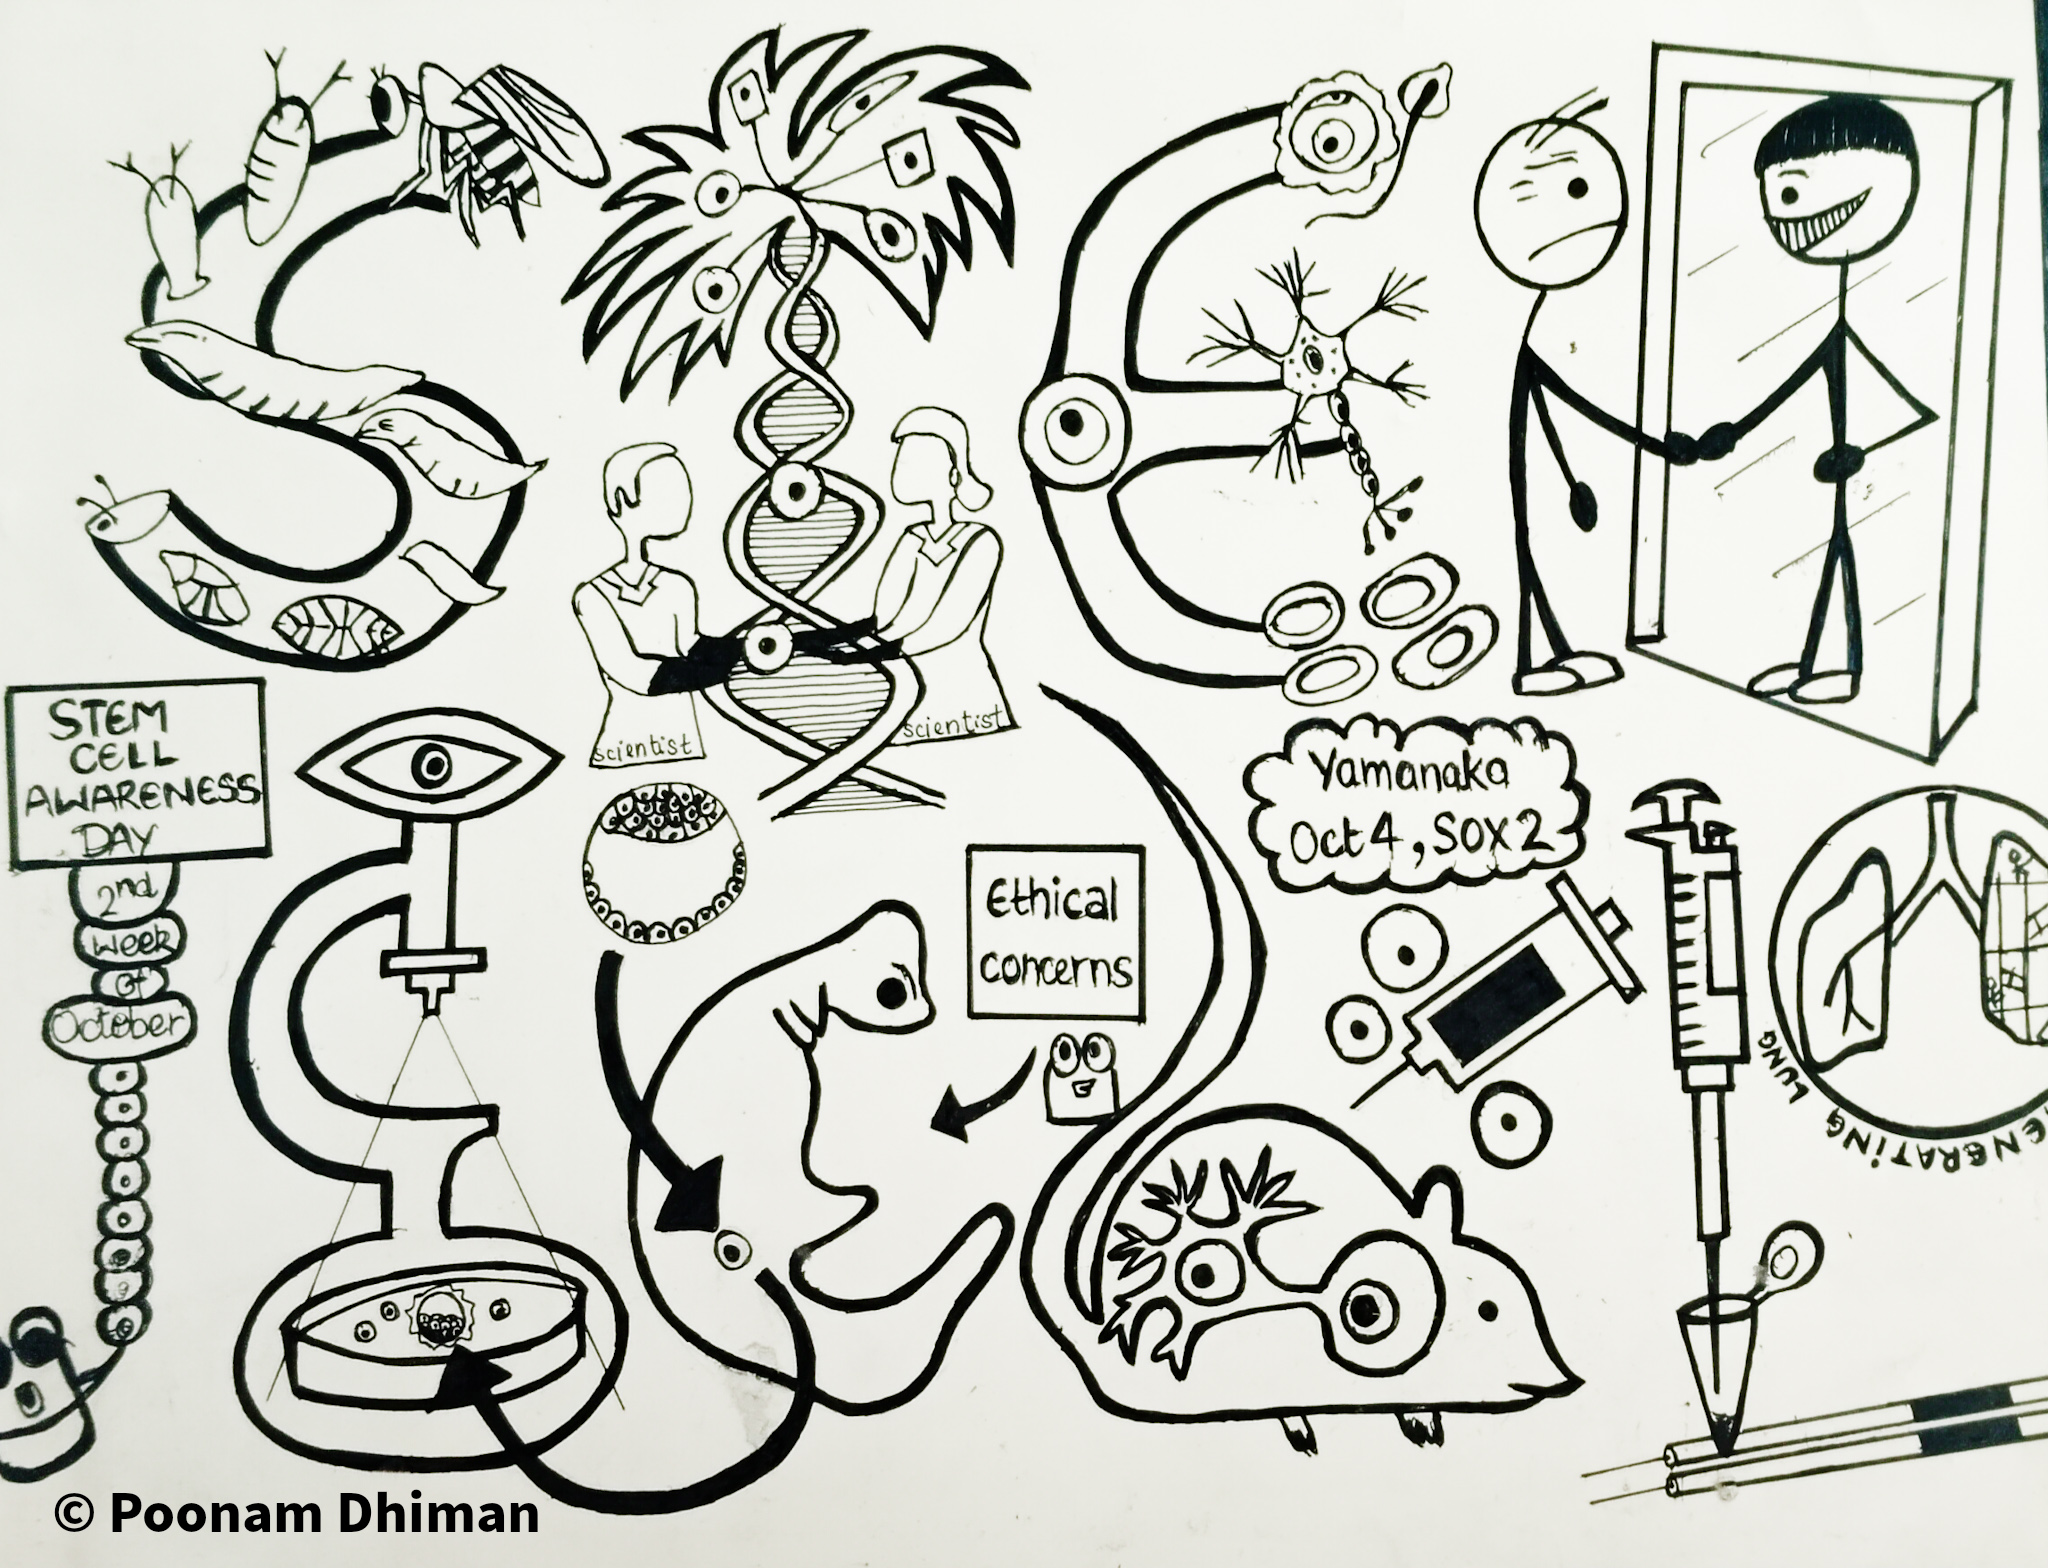 STEM
CELL
AWARENESS
DAY
2nd
week
of
October
scientist
scientist
Ethical
concerns
Yamanaka
Oct 4, Sox2
LUNG
© Poonam Dhiman